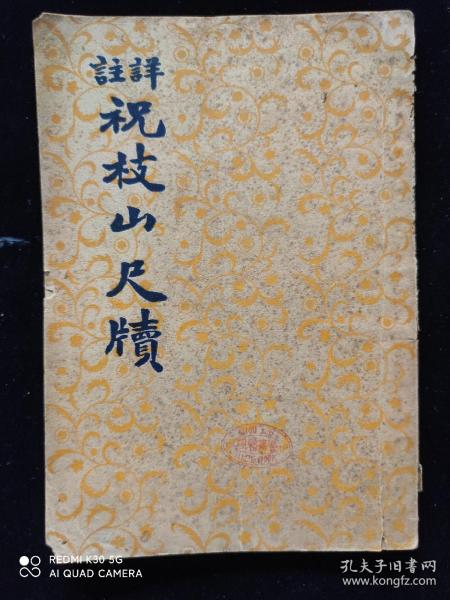 詳註
祝枝山尺牘
REDMI K30 5G
AI QUAD CAMERA
孔夫子旧书网
www.kongfz.com